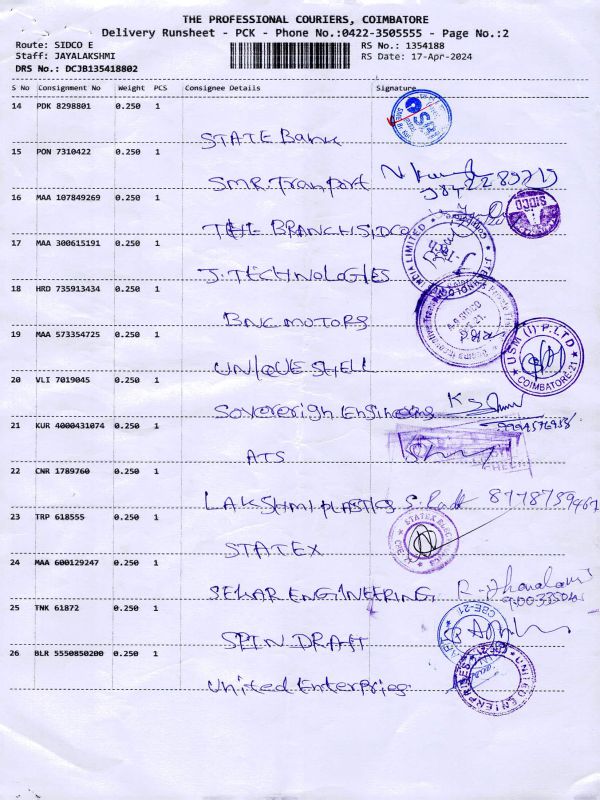 THE PROFESSIONAL COURIERS, COIMBATORE
Delivery Runsheet - PCK - Phone No.:0422-3505555 - Page No.:2
Route: SIDCO E
RS No.: 1354188
Staff: JAYALAKSHMI
RS Date: 17-Apr-2024
DRS No.: DCJB135418802
S No Consignment No Weight PCS Consignee Details Signature
14 PDK 8298801 0.250 1
STATE Bank
15 PON 7310422 0.250 1
SMR Tranport
16 MAA 107849269 0.250 1
SIDCO
THE BRANCH SIDCO
17 MAA 300615191 0.250 1
INDIA LIMITED
J. TECHNOLOGIES
18 HRD 735913434 0.250 1
BNC MOTORS
19 MAA 573354725 0.250 1
USM (I) P. LTD
COIMBATORE-21
UNIQUE SHELL
20 VLI 7019045 0.250 1
Sovererigh Engineering
21 KUR 4000431074 0.250 1
ATS
22 CNR 1789760 0.250 1
LAKSHMI PLASTICS
23 TRP 618555 0.250 1
STATEX
24 MAA 600129247 0.250 1
SEKAR ENGINEERING
25 TNK 61872 0.250 1
CBE-21
SPIN DRAFT
26 BLR 5550850200 0.250 1
UNITED ENTERPRISES
United Enterpries